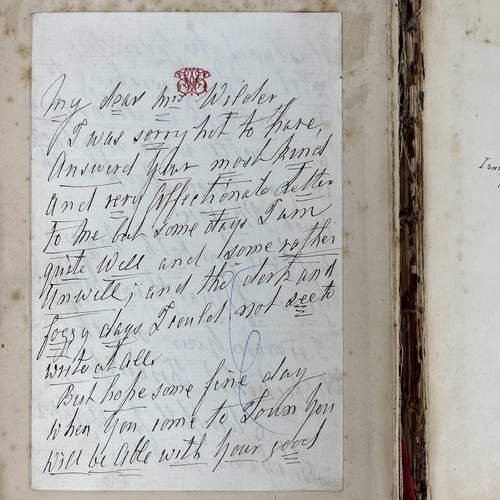 My dear Mrs Wilder
I was sorry not to have,
Answered your most kind
And very Affectionate Letter
to me but some days I am
quite Well and some rather
Unwell; and the dark and
foggy days I could not see to
write at all
But hope some fine day
when you come to Town You
will be Able with Your good